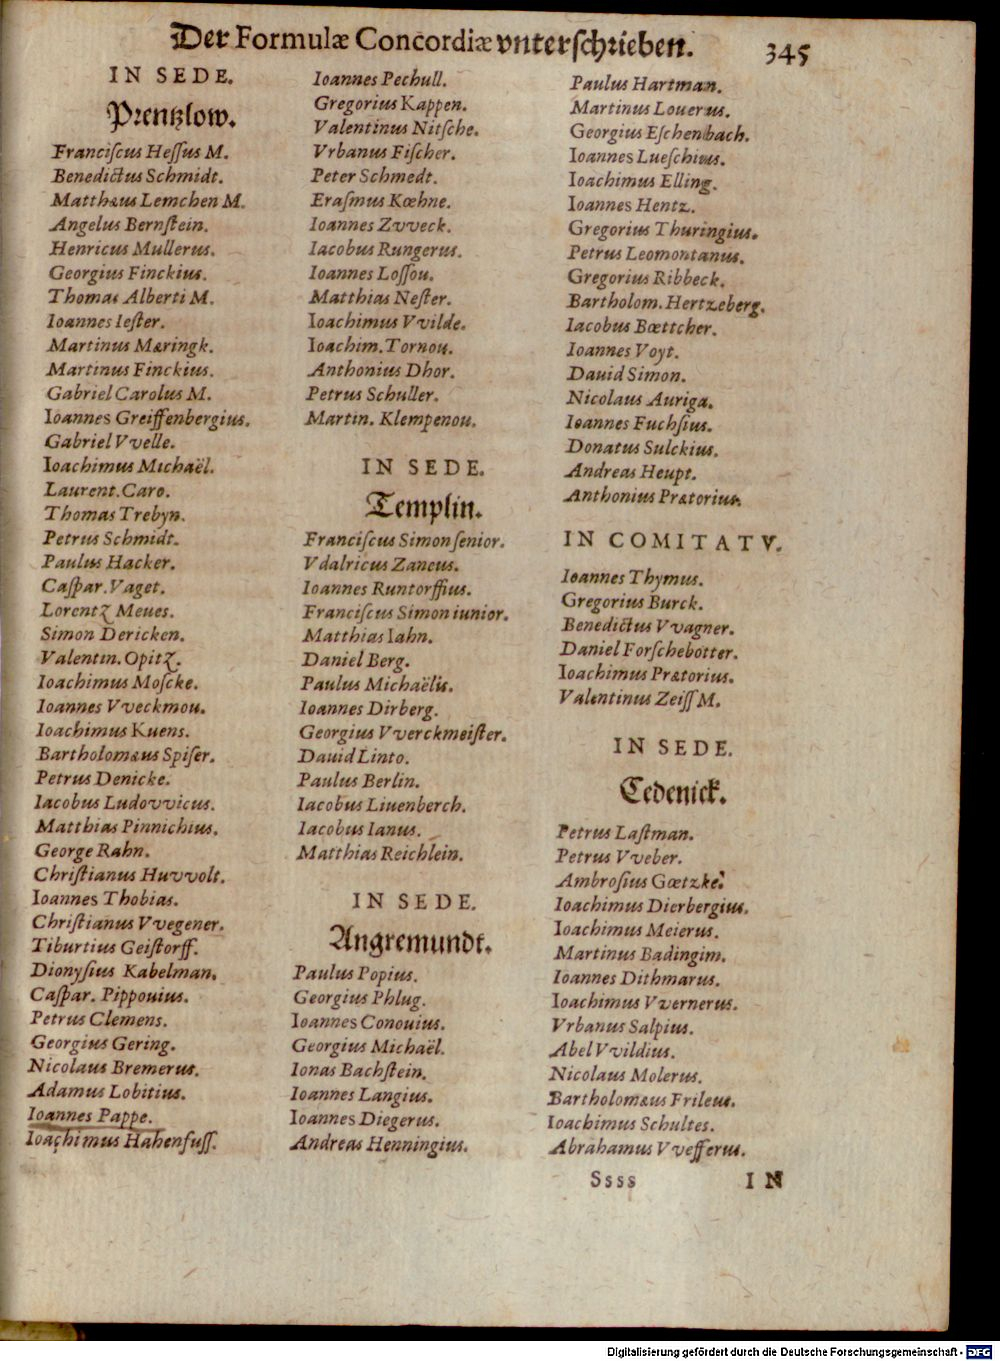 Der Formulæ Concordiæ vnterſchrieben. 345
IN SEDE.
Prentzlow.
Franciſcus Heſſus M.
Benedictus Schmidt.
Matthæus Lemchen M.
Angelus Bernſtein.
Henricus Mullerus.
Georgius Finckius.
Thomas Alberti M.
Ioannes Ieſter.
Martinus Mæringk.
Martinus Finckius.
Gabriel Carolus M.
Ioannes Greiffenbergius.
Gabriel Vvelle.
Ioachimus Michaël.
Laurent. Caro.
Thomas Trebyn.
Petrus Schmidt.
Paulus Hacker.
Caſpar. Vaget.
Lorentz Meues.
Simon Dericken.
Valentin. Opitz.
Ioachimus Moſcke.
Ioannes Vveckmou.
Ioachimus Kuens.
Bartholomæus Spiſer.
Petrus Denicke.
Iacobus Ludovvicus.
Matthias Pinnichius.
George Rahn.
Chriſtianus Huvvolt.
Ioannes Thobias.
Chriſtianus Vvegener.
Tiburtius Geiſtorff.
Dionyſius Kabelman.
Caſpar. Pippouius.
Petrus Clemens.
Georgius Gering.
Nicolaus Bremerus.
Adamus Lobitius.
Ioannes Pappe.
Ioachimus Hahenfuſſ.
Ioannes Pechull.
Gregorius Kappen.
Valentinus Nitſche.
Vrbanus Fiſcher.
Peter Schmedt.
Eraſmus Kœhne.
Ioannes Zvveck.
Iacobus Rungerus.
Ioannes Loſſou.
Matthias Neſter.
Ioachimus Vvilde.
Ioachim. Tornou.
Anthonius Dhor.
Petrus Schuller.
Martin. Klempenou.
IN SEDE.
Templin.
Franciſcus Simon ſenior.
Vdalricus Zancus.
Ioannes Runtorffius.
Franciſcus Simon iunior.
Matthias Iahn.
Daniel Berg.
Paulus Michaëlis.
Ioannes Dirberg.
Georgius Vverckmeiſter.
Dauid Linto.
Paulus Berlin.
Iacobus Liuenberch.
Iacobus Ianus.
Matthias Reichlein.
IN SEDE.
Angremundt.
Paulus Popius.
Georgius Phlug.
Ioannes Conouius.
Georgius Michaël.
Ionas Bachſtein.
Ioannes Langius.
Ioannes Diegerus.
Andreas Henningius.
Paulus Hartman.
Martinus Louerus.
Georgius Eſchenbach.
Ioannes Lueſchius.
Ioachimus Elling.
Ioannes Hentz.
Gregorius Thuringius.
Petrus Leomontanus.
Gregorius Ribbeck.
Bartholom. Hertzeberg.
Iacobus Bœttcher.
Ioannes Voyt.
Dauid Simon.
Nicolaus Auriga.
Ioannes Fuchſius.
Donatus Sulckius.
Andreas Heupt.
Anthonius Prætorius.
IN COMITATV.
Ioannes Thymus.
Gregorius Burck.
Benedictus Vvagner.
Daniel Forſchebotter.
Ioachimus Prætorius.
Valentinus Zeiſſ M.
IN SEDE.
Cedenick.
Petrus Laſtman.
Petrus Vveber.
Ambroſius Gœtzke.
Ioachimus Dierbergius.
Ioachimus Meierus.
Martinus Badingim.
Ioannes Dithmarus.
Ioachimus Vvernerus.
Vrbanus Salpius.
Abel Vvildius.
Nicolaus Molerus.
Bartholomæus Frileus.
Ioachimus Schultes.
Abrahamus Vvefferus.
Ssss IN
Digitalisierung gefördert durch die Deutsche Forschungsgemeinschaft - DFG